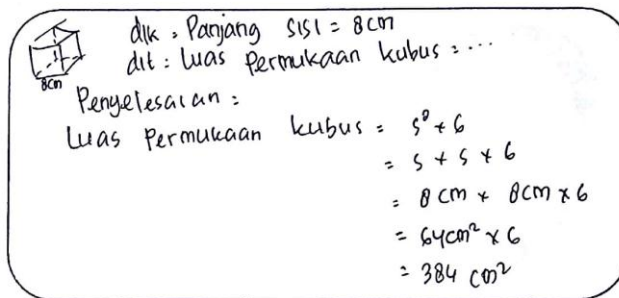 dik : Panjang sisi = 8cm
dit : Luas Permukaan kubus = ...
8cm
Penyelesaian :
Luas Permukaan kubus = s² × 6
= s × s × 6
= 8 cm × 8cm × 6
= 64cm² × 6
= 384 cm²